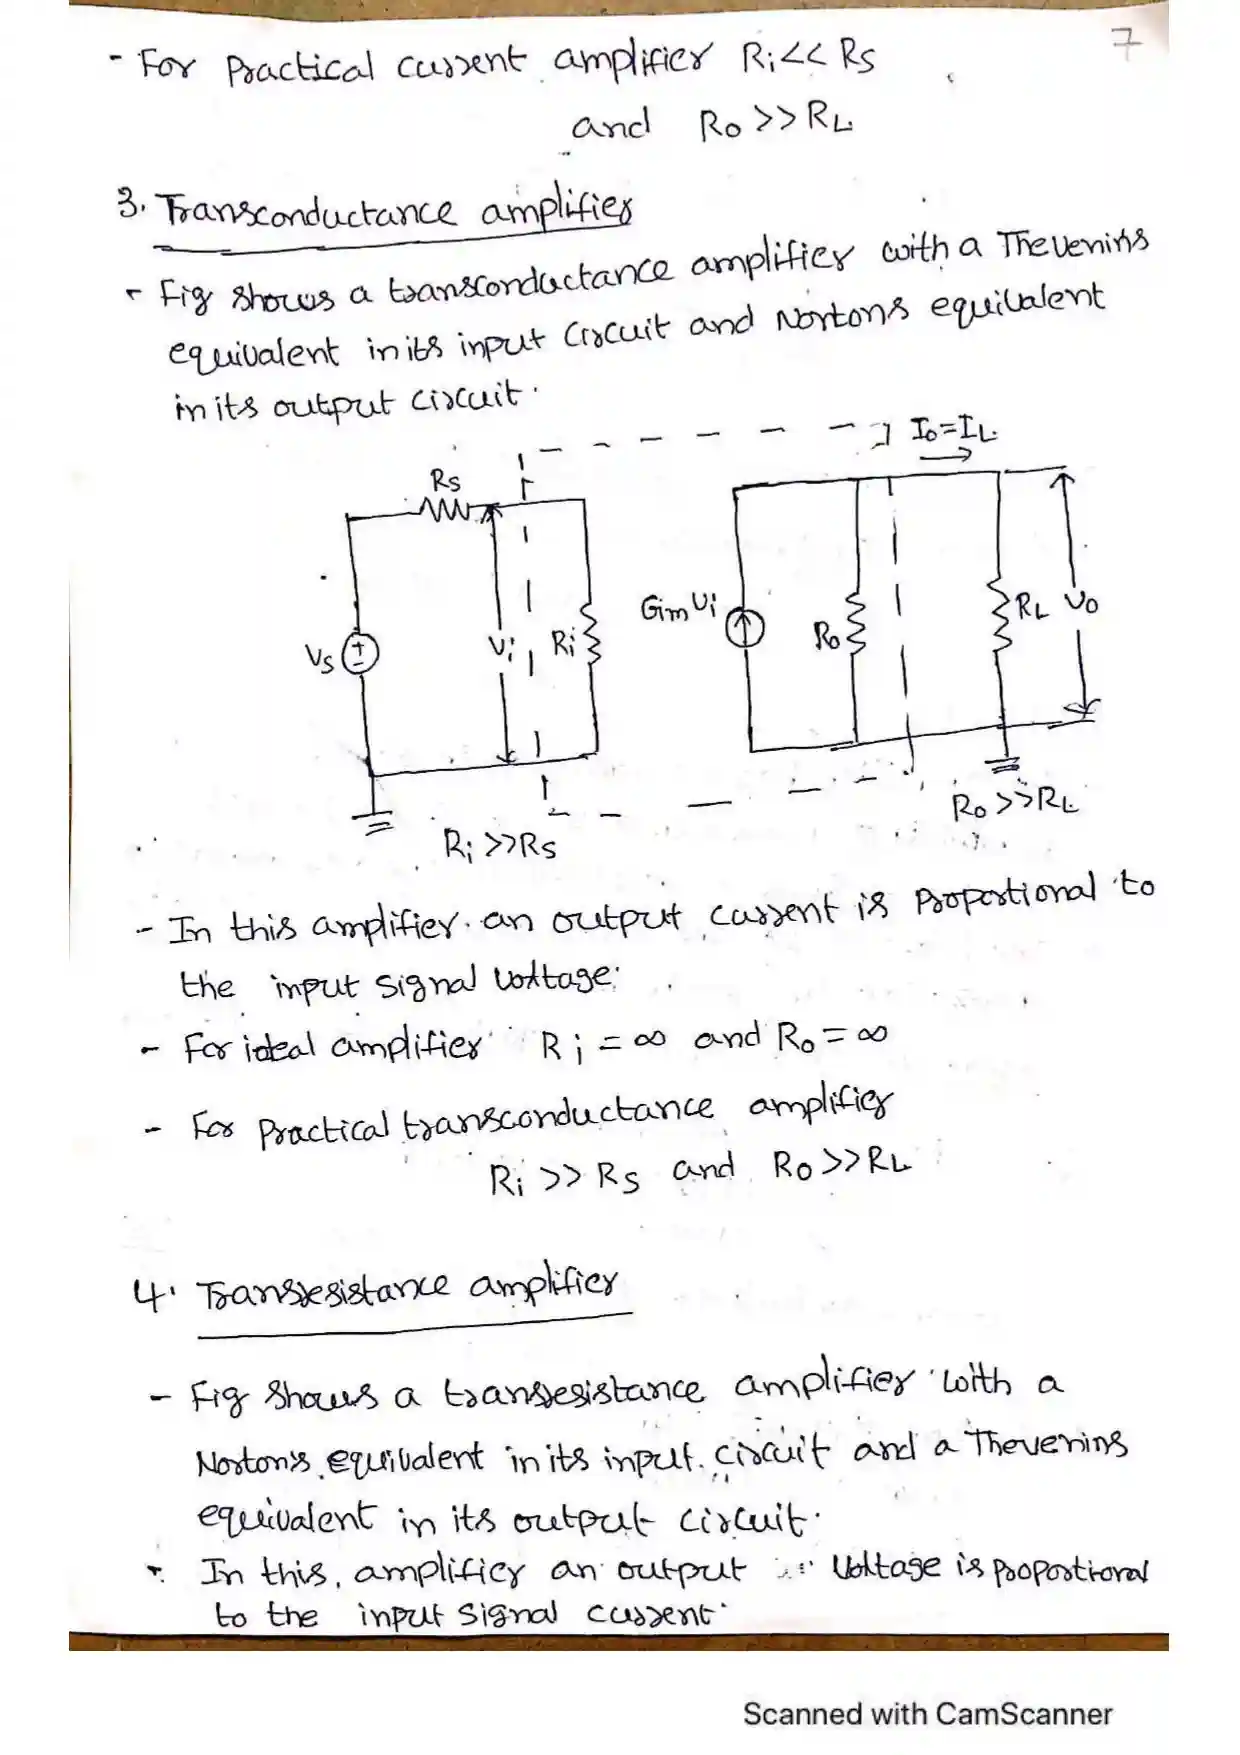 7
- For Practical current amplifier Ri<< Rs
and Ro >> RL
3. Transconductance amplifier
- Fig shows a transconductance amplifier with a Thevenin's
equivalent in its input circuit and Norton's equivalent
in its output circuit.
Io = IL
Rs
Vs
Vi
Ri
Gm Vi
Ro
RL
Vo
Ri >> Rs
Ro >> RL
- In this amplifier an output current is proportional to
the input signal voltage.
- For ideal amplifier Ri = ∞ and Ro = ∞
- For practical transconductance amplifier
Ri >> Rs and Ro >> RL
4. Transresistance amplifier
- Fig shows a transresistance amplifier with a
Norton's equivalent in its input circuit and a Thevenins
equivalent in its output circuit.
- In this, amplifier an output voltage is proportional
to the input signal current.
Scanned with CamScanner